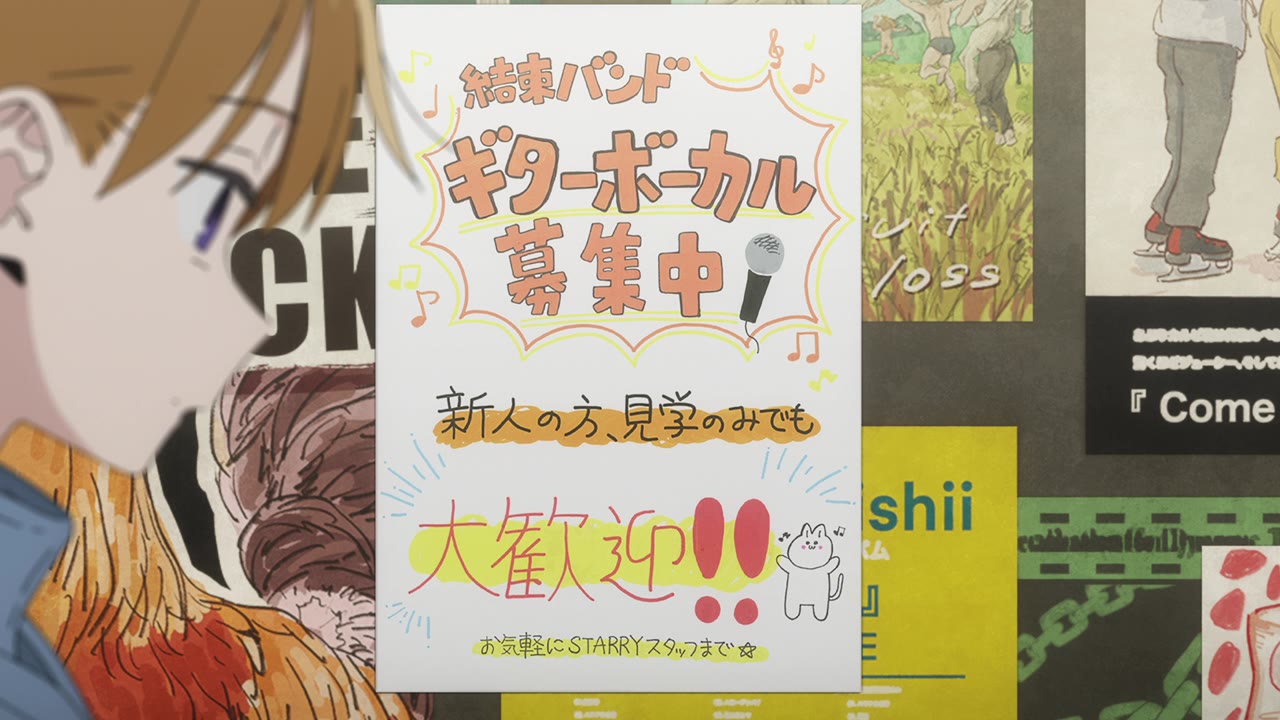 結束バンド
ギターボーカル
募集中
新人の方、見学のみでも
大歓迎!!
お気軽にSTARRYスタッフまで☆
CK
uit
loss
『Come
ishii